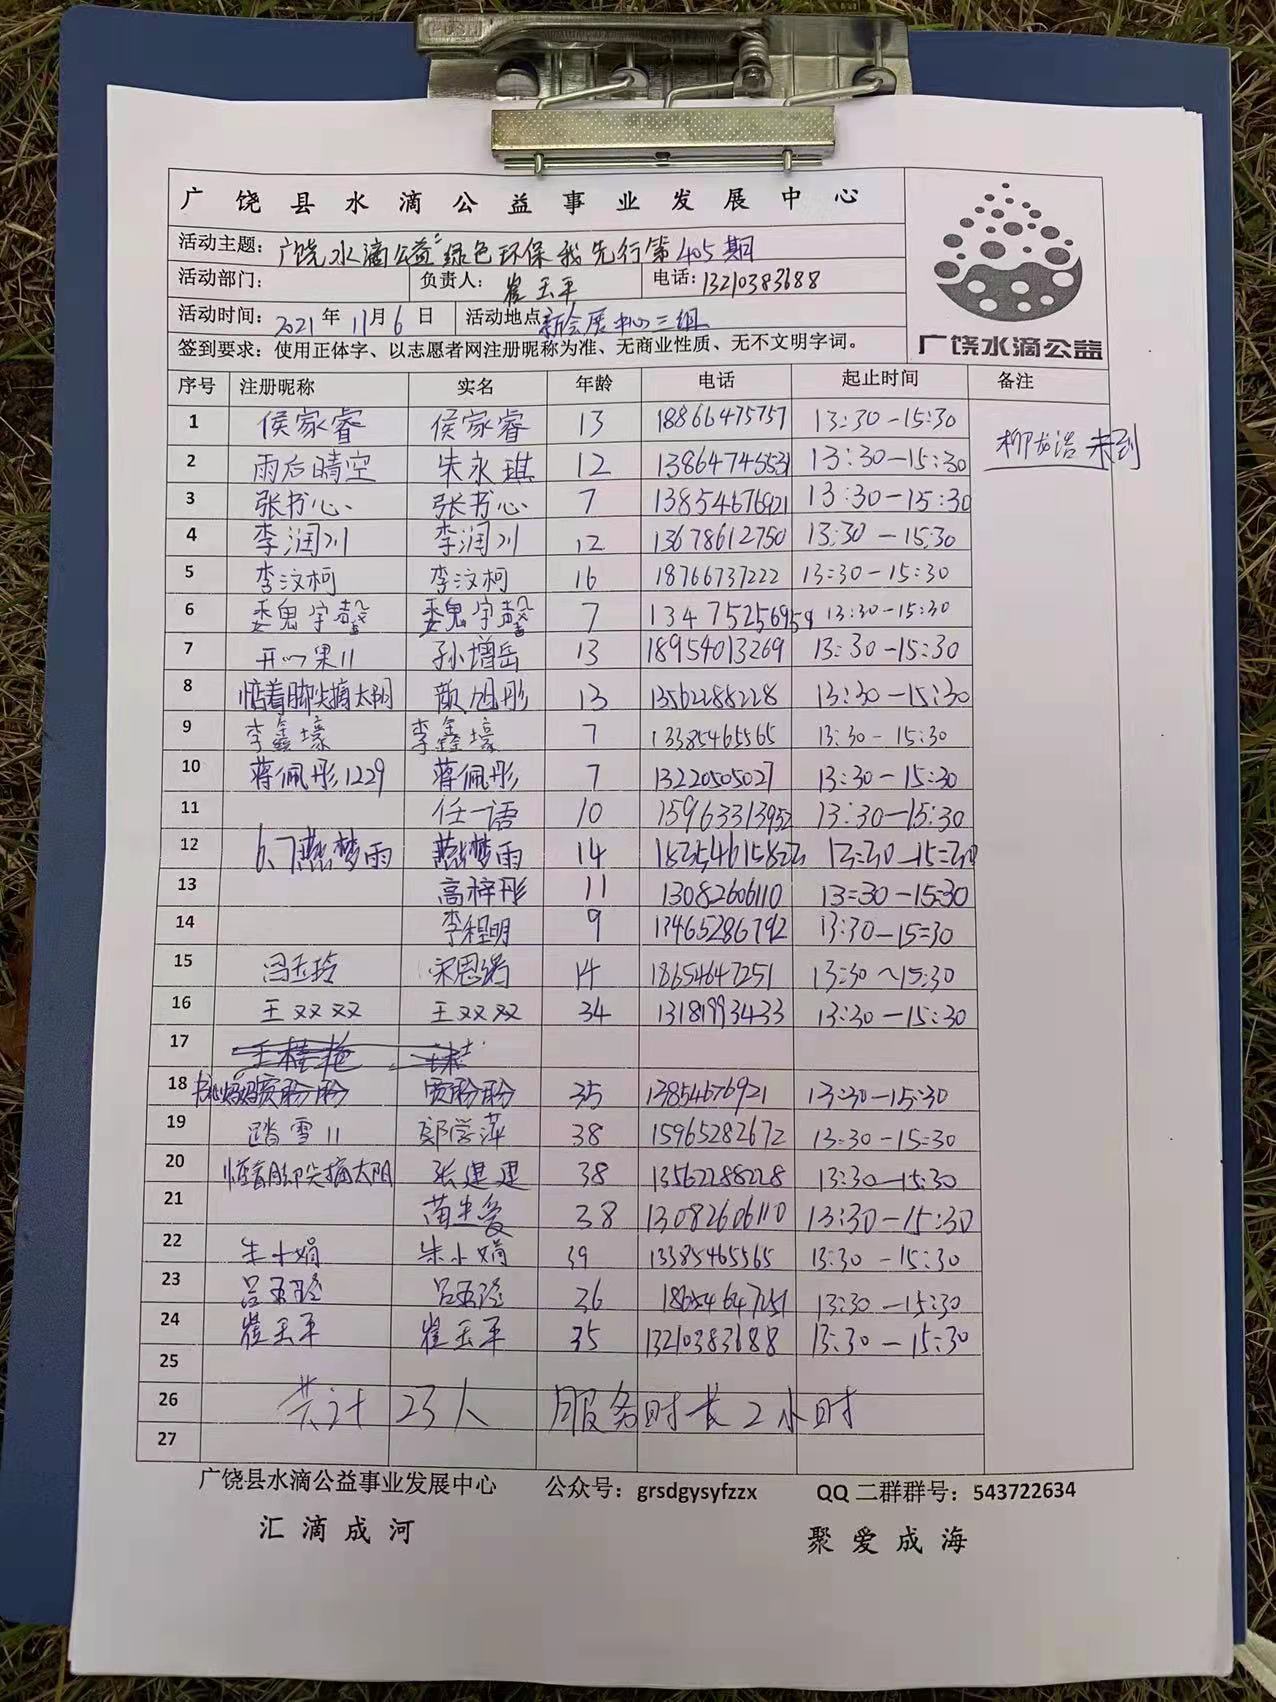 广饶县水滴公益事业发展中心
活动主题：广饶水滴公益"绿色环保我先行第405期
活动部门： 负责人：崔玉平 电话：13210383688
活动时间：2021年11月6日 活动地点 新会展中心三组
签到要求：使用正体字、以志愿者网注册昵称为准、无商业性质、无不文明字词。
广饶水滴公益
序号 注册昵称 实名 年龄 电话 起止时间 备注
1 侯家睿 侯家睿 13 18866475757 13:30-15:30
柳龙浩 未到
2 雨后晴空 朱永琪 12 13864745531 13:30-15:30
3 张书心 张书心 7 13854676921 13:30-15:30
4 李润川 李润川 12 13678612750 13:30-15:30
5 李汶柯 李汶柯 16 18766737222 13:30-15:30
6 魏宇馨 魏宇馨 7 13475256959 13:30-15:30
7 开心果11 孙增岳 13 18954013269 13:30-15:30
8 惦着脚尖摘太阳 颜旭彤 13 13562288228 13:30-15:30
9 李鑫壕 李鑫壕 7 13385465565 13:30-15:30
10 蒋佩彤1229 蒋佩彤 7 13220505027 13:30-15:30
11 任一语 10 15963313952 13:30-15:30
12 6.7燕梦雨 燕梦雨 14 13:30-15:30
13 高梓彤 11 13082606110 13:30-15:30
14 李程明 9 13465286792 13:30-15:30
15 吕玉玲 宋恩绮 14 18654647251 13:30~15:30
16 王双双 王双双 34 13181993433 13:30-15:30
17 王桂艳 王桂
18 书心妈妈贾盼盼 贾盼盼 35 13854676921 13:30-15:30
19 踏雪11 郭学萍 38 15965282672 13:30-15:30
20 惦着脚尖摘太阳 张建建 38 13562288228 13:30-15:30
21 38 13082606110 13:30-15:30
22 朱小娟 朱小娟 39 13385465565 13:30-15:30
23 36 18654647251 13:30-15:30
24 崔玉平 崔玉平 35 13210383688 13:30-15:30
25
26 共计23人 服务时长2小时
27
广饶县水滴公益事业发展中心 公众号：grsdgysyfzzx QQ二群群号：543722634
汇滴成河 聚爱成海